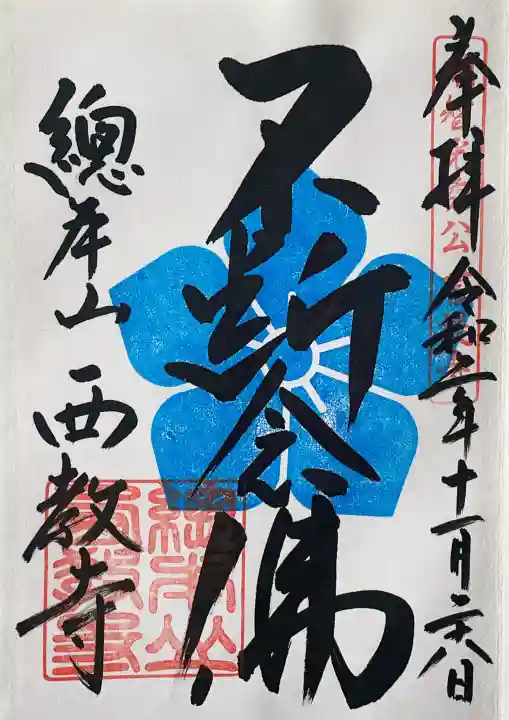 奉拝 令和二年十一月二十八日
不断念佛
總本山 西教寺